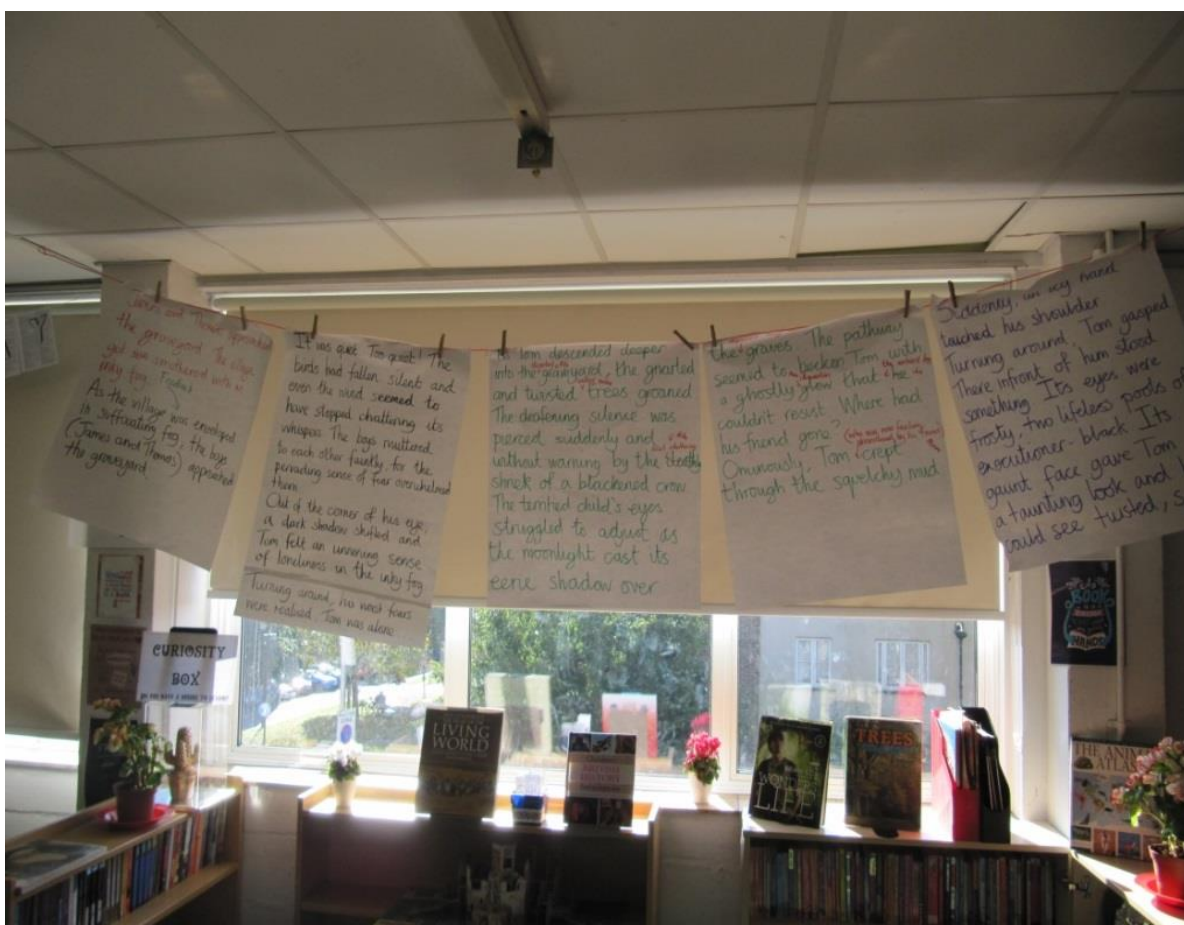 James and Thomas approached
the graveyard. The village
was smothered with
inky fog.
As the village was enveloped
in suffocating fog, the boys
(James and Thomas) approached
the graveyard.
It was quiet. Too quiet! The
birds had fallen silent and
even the wind seemed to
have stopped chattering its
whispers. The boys muttered
to each other faintly, for the
pervading sense of fear overwhelmed
them.
Out of the corner of his eye,
a dark shadow shifted and
Tom felt an unnerving sense
of loneliness in the inky fog
Turning around, his worst fears
were realised. Tom was alone
As Tom descended deeper
into the graveyard, the gnarled
and twisted trees groaned
The deafening silence was
pierced suddenly and
without warning by the
shriek of a blackened crow.
The terrified child's eyes
struggled to adjust as
the moonlight cast its
eerie shadow over
the graves. The pathway
seemed to beckon Tom with
a ghostly glow that he
couldn't resist. Where had
his friend gone?
Ominously, Tom crept
through the squelchy mud.
Suddenly, an icy hand
touched his shoulder
Turning around, Tom gasped
There infront of him stood
something. Its eyes were
frosty, two lifeless pools of
executioner-black Its
gaunt face gave Tom
a taunting look and
could see twisted,
CURIOSITY
BOX
LIVING
WORLD
LIFE
TREES
THE ANIMAL
ATLAS
BOOK